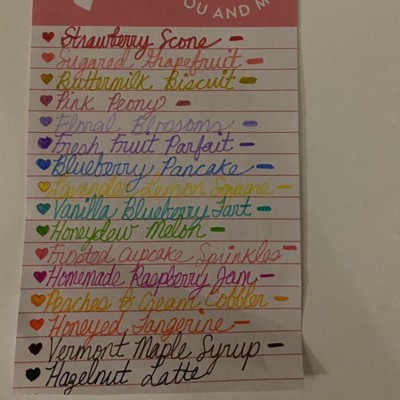 OU AND M
Strawberry Scone
Sugared Grapefruit
Buttermilk Biscuit
Pink Peony
Floral Blossoms
Fresh Fruit Parfait
Blueberry Pancake
Lavender Lemon Square
Vanilla Blueberry Tart
Honeydew Melon
Frosted Cupcake Sprinkles
Homemade Raspberry Jam
Peaches & Cream Cobbler
Honeyed Tangerine
Vermont Maple Syrup
Hazelnut Latte